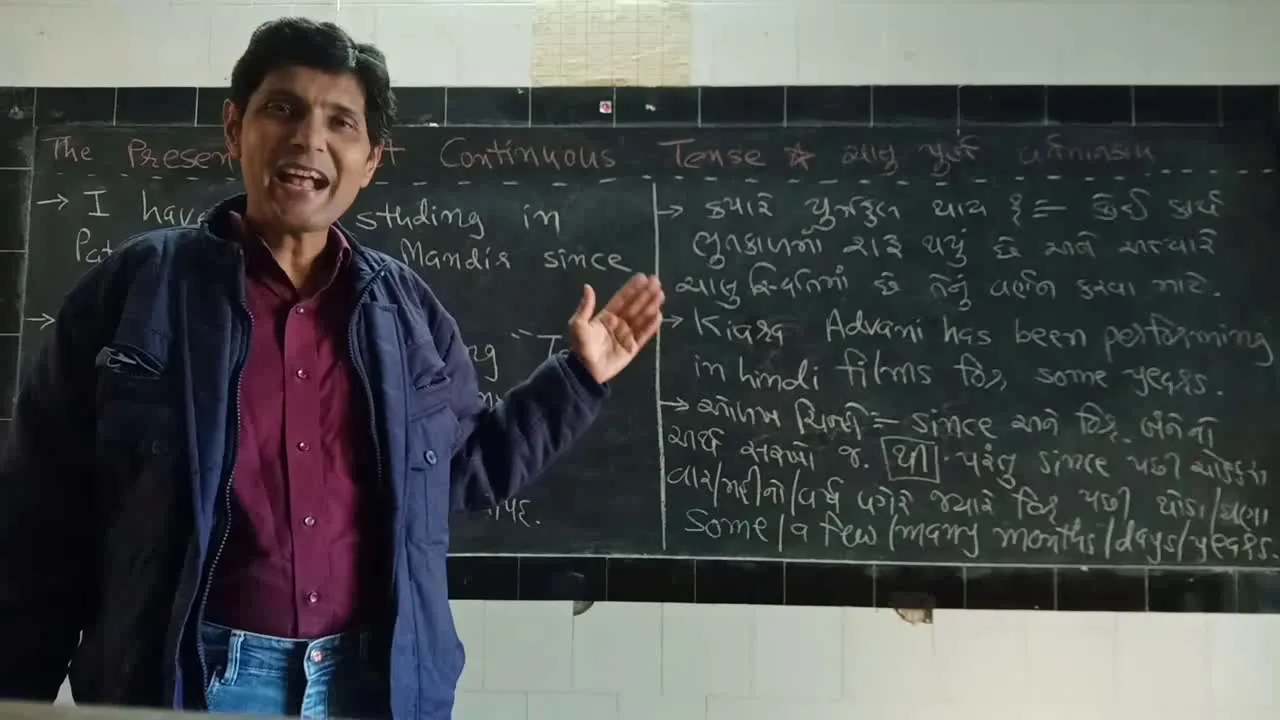 The Presen t Continuous Tense ☆ ચાલુ પૂર્ણ વર્તમાનકાળ
→ I have studing in
Pat Mandir since
→
ng "T
→ ક્યારે પ્રયુક્ત થાય છે = કોઈ કાર્ય
ભુતકાળમાં શરૂ થયું છે અને અત્યારે
ચાલુ સ્થિતિમાં છે તેનું વર્ણન કરવા માટે.
→ Kiara Advani has been performing
in hindi films for some years.
→ ઓળખ ચિન્હો = since અને for. બંનેનો
અર્થ સરખો જ. થી પરંતુ since પછી ચોક્કસ
વાર/મહીનો/વર્ષ વગેરે જ્યારે for પછી થોડા/ઘણા
some/a few/many months/days/years.